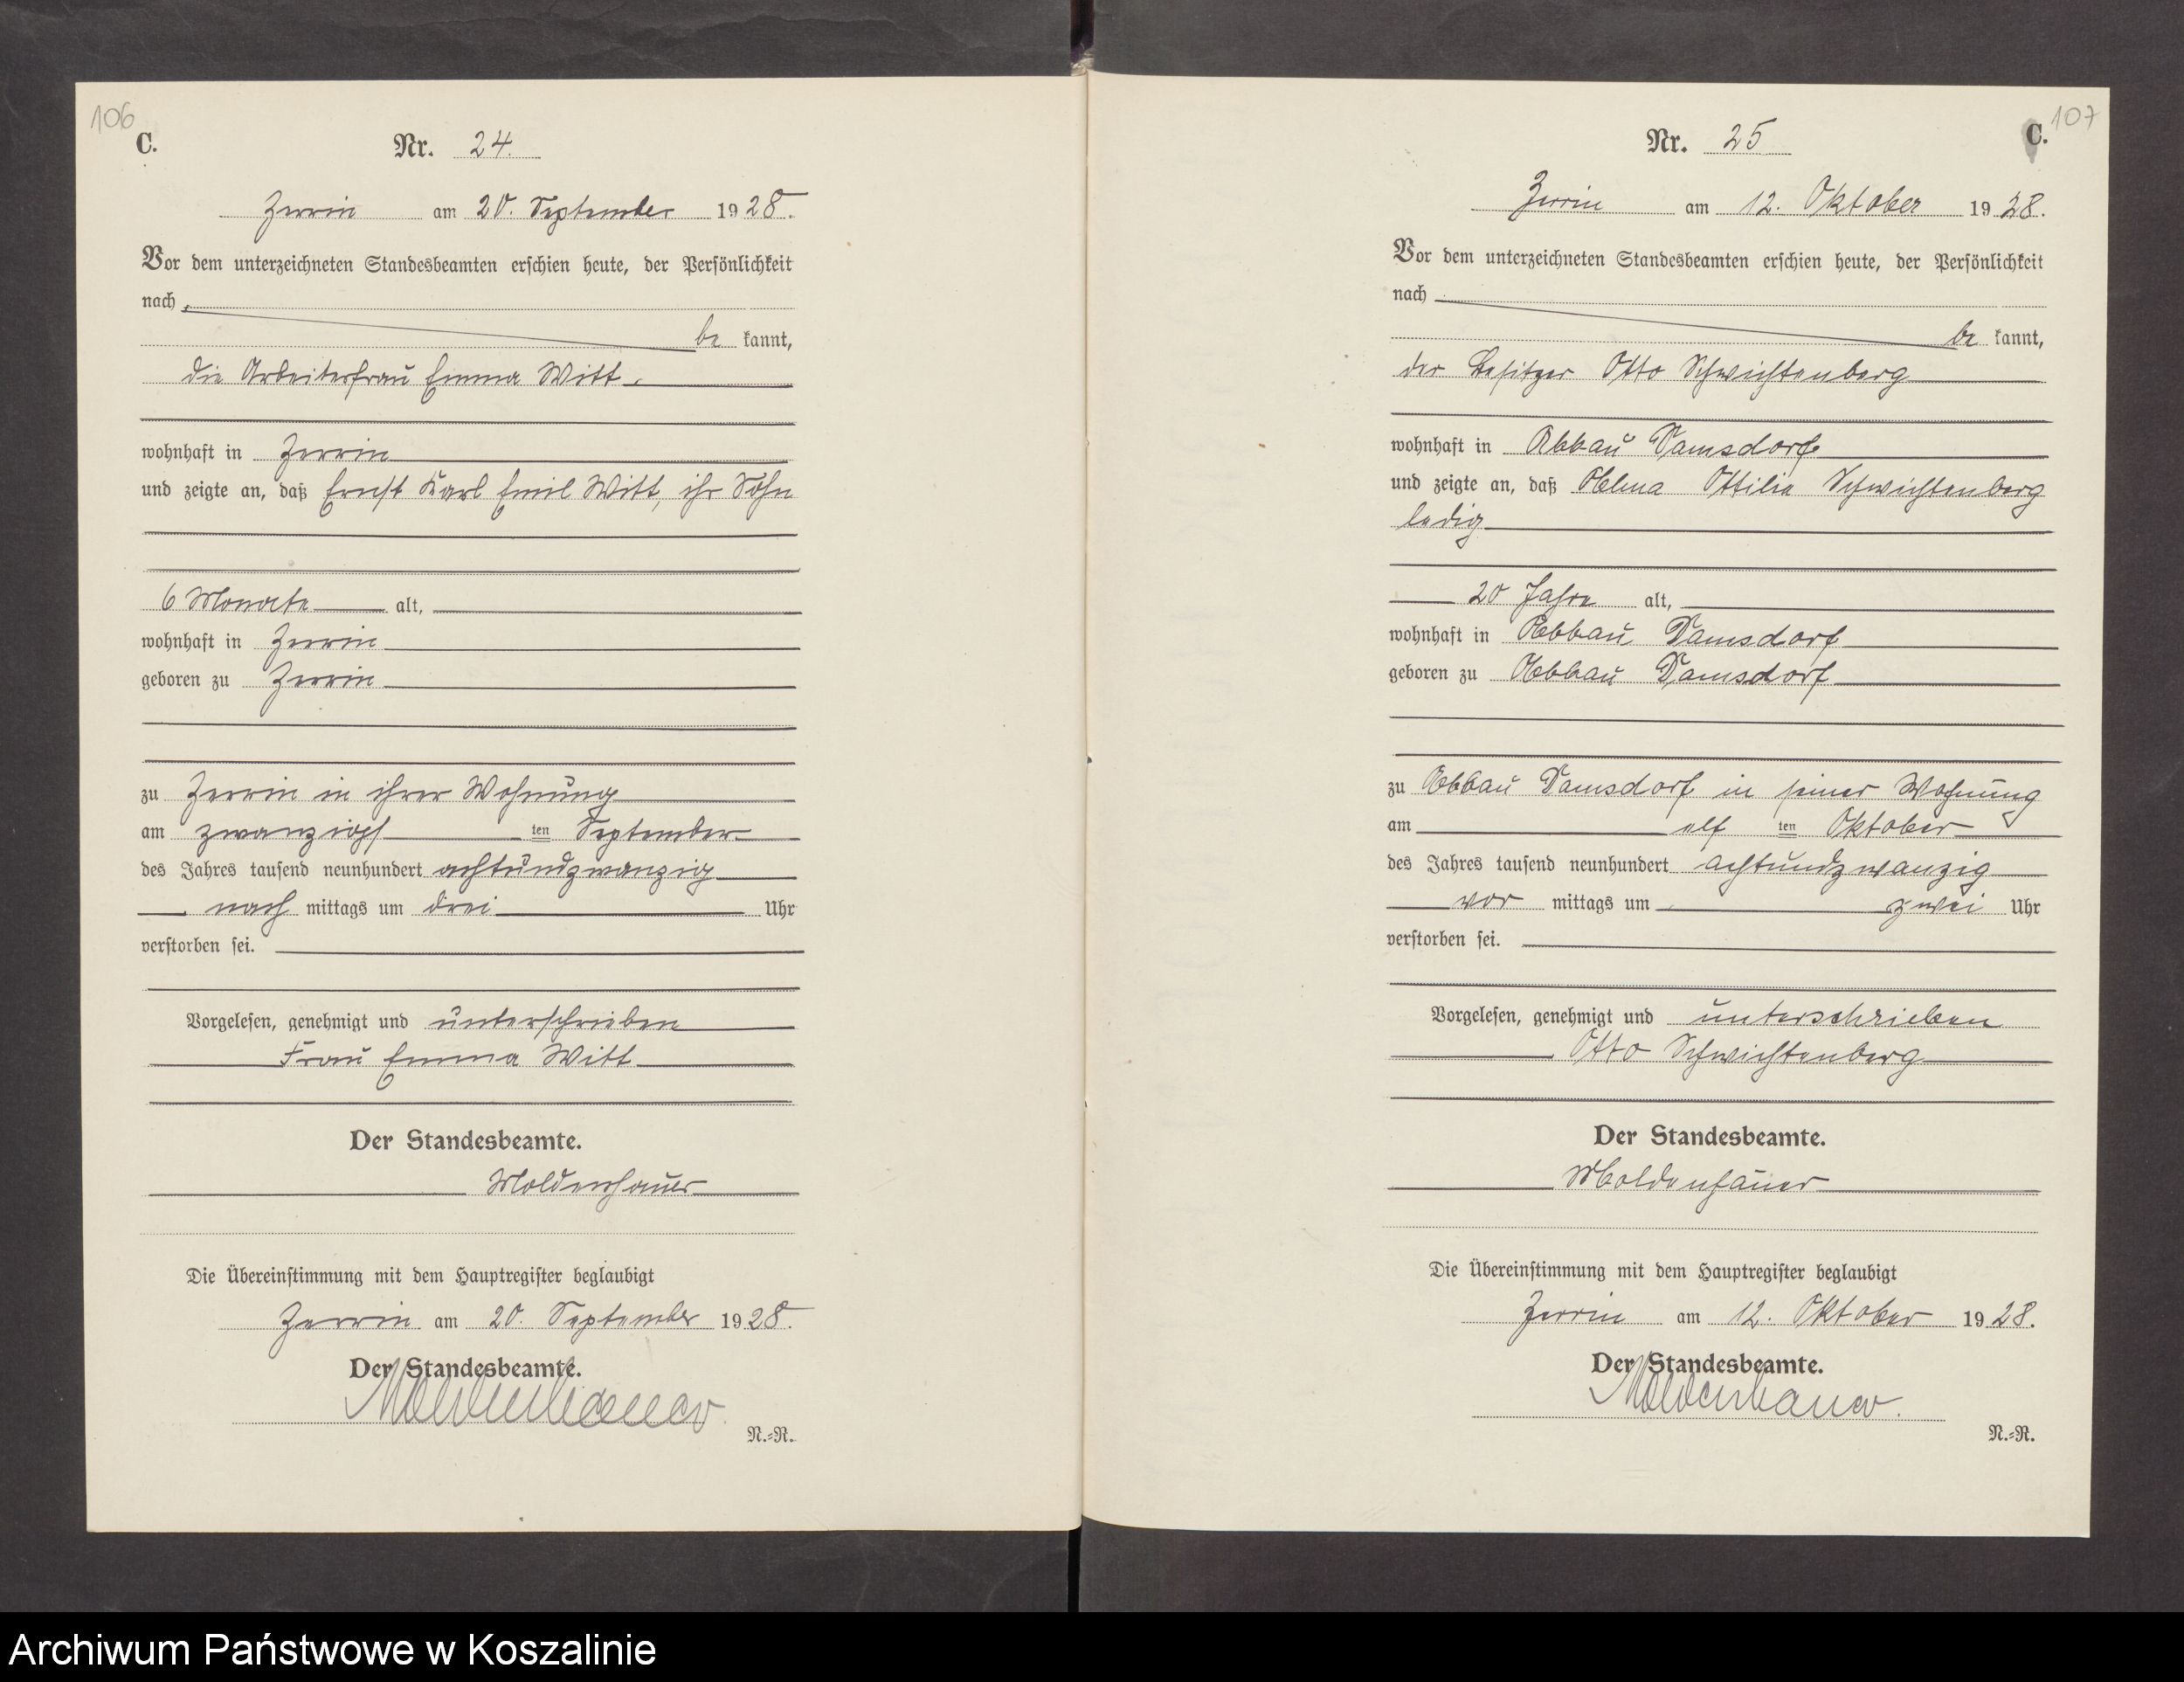 106
C.
Nr. 24.
Zerrin am 20. September 1928.
Vor dem unterzeichneten Standesbeamten erschien heute, der Persönlichkeit
nach
be kannt,
die Arbeiterfrau Emma Witt.
wohnhaft in Zerrin
und zeigte an, daß Ernst Karl Emil Witt, ihr Sohn
6 Monate alt,
wohnhaft in Zerrin
geboren zu Zerrin
zu Zerrin in ihrer Wohnung
am zwanzigst ten September
des Jahres tausend neunhundert achtundzwanzig
nach mittags um drei Uhr
verstorben sei.
Vorgelesen, genehmigt und unterschrieben
Frau Emma Witt
Der Standesbeamte.
Moldenhauer
Die Übereinstimmung mit dem Hauptregister beglaubigt
Zerrin am 20. September 1928.
Der Standesbeamte.
Moldenhauer
N.=R.
107
C.
Nr. 25
Zerrin am 12. Oktober 1928.
Vor dem unterzeichneten Standesbeamten erschien heute, der Persönlichkeit
nach
be kannt,
der Besitzer Otto Schwichtenberg
wohnhaft in Abbau Damsdorf
und zeigte an, daß Ottilie Schwichtenberg
ledig
20 Jahre alt,
wohnhaft in Abbau Damsdorf
geboren zu Abbau Damsdorf
zu Abbau Damsdorf in seiner Wohnung
am elf ten Oktober
des Jahres tausend neunhundert achtundzwanzig
vor mittags um zwei Uhr
verstorben sei.
Vorgelesen, genehmigt und unterschrieben
Otto Schwichtenberg
Der Standesbeamte.
Moldenhauer
Die Übereinstimmung mit dem Hauptregister beglaubigt
Zerrin am 12. Oktober 1928.
Der Standesbeamte.
Moldenhauer.
N.=R.
Archiwum Państwowe w Koszalinie